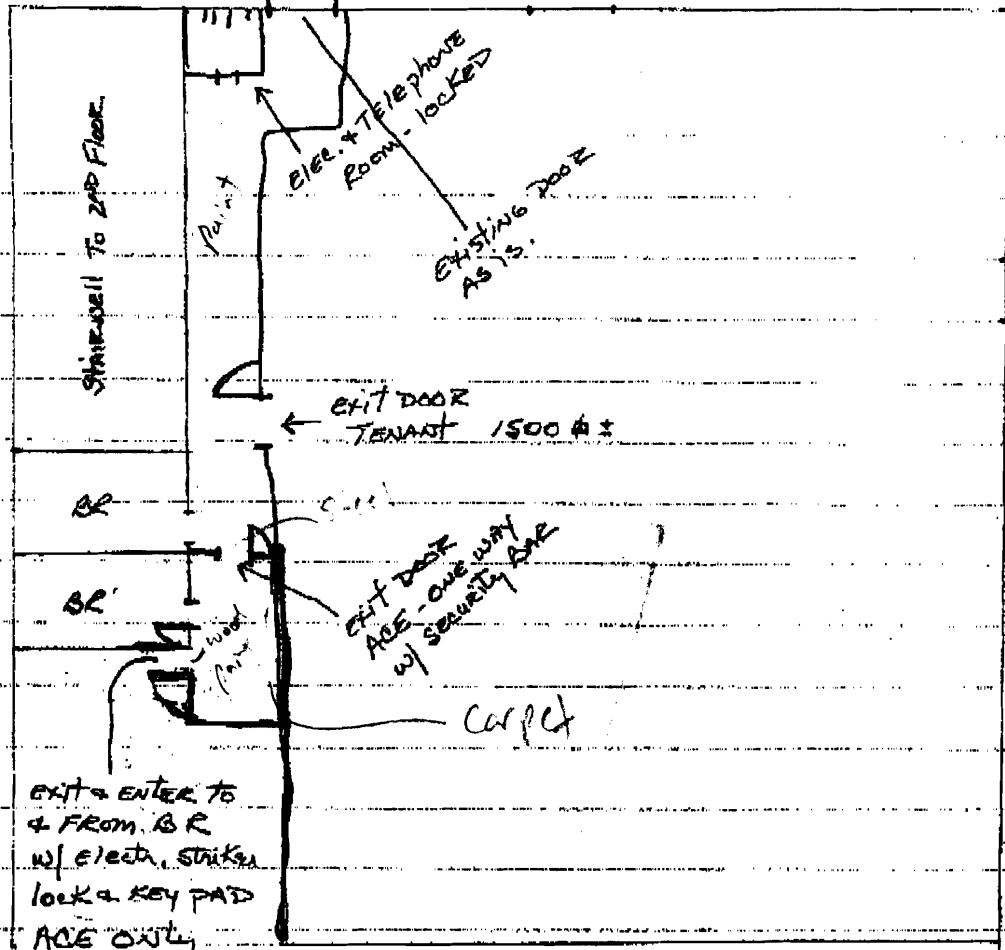 STAIRWELL TO 2ND FLOOR.
Paint
ELEC. & TELEPHONE
ROOM - LOCKED
EXISTING DOOR
AS IS.
EXIT DOOR
TENANT 1500 ⌀ ±
BR
EXIT DOOR
ACE - ONE WAY
W/ SECURITY BAR
BR
wood
Paint
Carpet
EXIT & ENTER TO
& FROM BR
W/ Electr. Striker
lock & KEY PAD
ACE ONLY